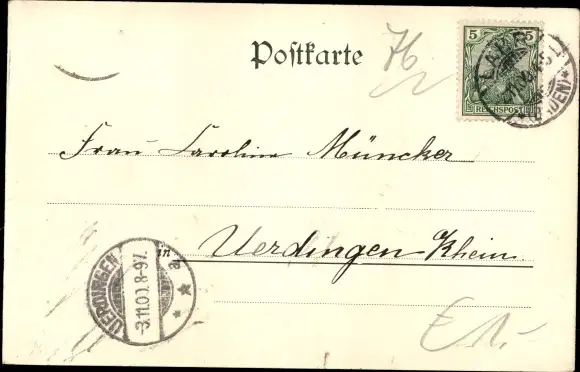 Postkarte
76
5 5
REICHSPOST
(BADEN)
Frau Caroline Müncker
Uerdingen Rhein
UERDINGEN
-3.11.00. 8-9V.